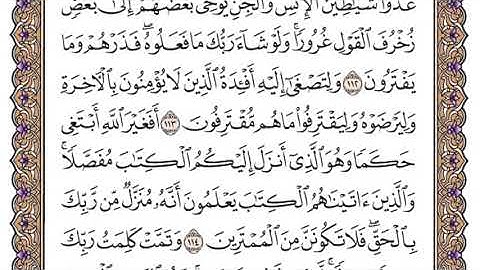 عَدُوًّا شَيَـٰطِينَ ٱلْإِنسِ وَٱلْجِنِّ يُوحِى بَعْضُهُمْ إِلَىٰ بَعْضٍ
زُخْرُفَ ٱلْقَوْلِ غُرُورًا ۚ وَلَوْ شَآءَ رَبُّكَ مَا فَعَلُوهُ ۖ فَذَرْهُمْ وَمَا
يَفْتَرُونَ ١١٢ وَلِتَصْغَىٰٓ إِلَيْهِ أَفْـِٔدَةُ ٱلَّذِينَ لَا يُؤْمِنُونَ بِٱلْـَٔاخِرَةِ
وَلِيَرْضَوْهُ وَلِيَقْتَرِفُوا۟ مَا هُم مُّقْتَرِفُونَ ١١٣ أَفَغَيْرَ ٱللَّهِ أَبْتَغِى
حَكَمًا وَهُوَ ٱلَّذِىٓ أَنزَلَ إِلَيْكُمُ ٱلْكِتَـٰبَ مُفَصَّلًا ۚ
وَٱلَّذِينَ ءَاتَيْنَـٰهُمُ ٱلْكِتَـٰبَ يَعْلَمُونَ أَنَّهُۥ مُنَزَّلٌ مِّن رَّبِّكَ
بِٱلْحَقِّ ۖ فَلَا تَكُونَنَّ مِنَ ٱلْمُمْتَرِينَ ١١٤ وَتَمَّتْ كَلِمَتُ رَبِّكَ